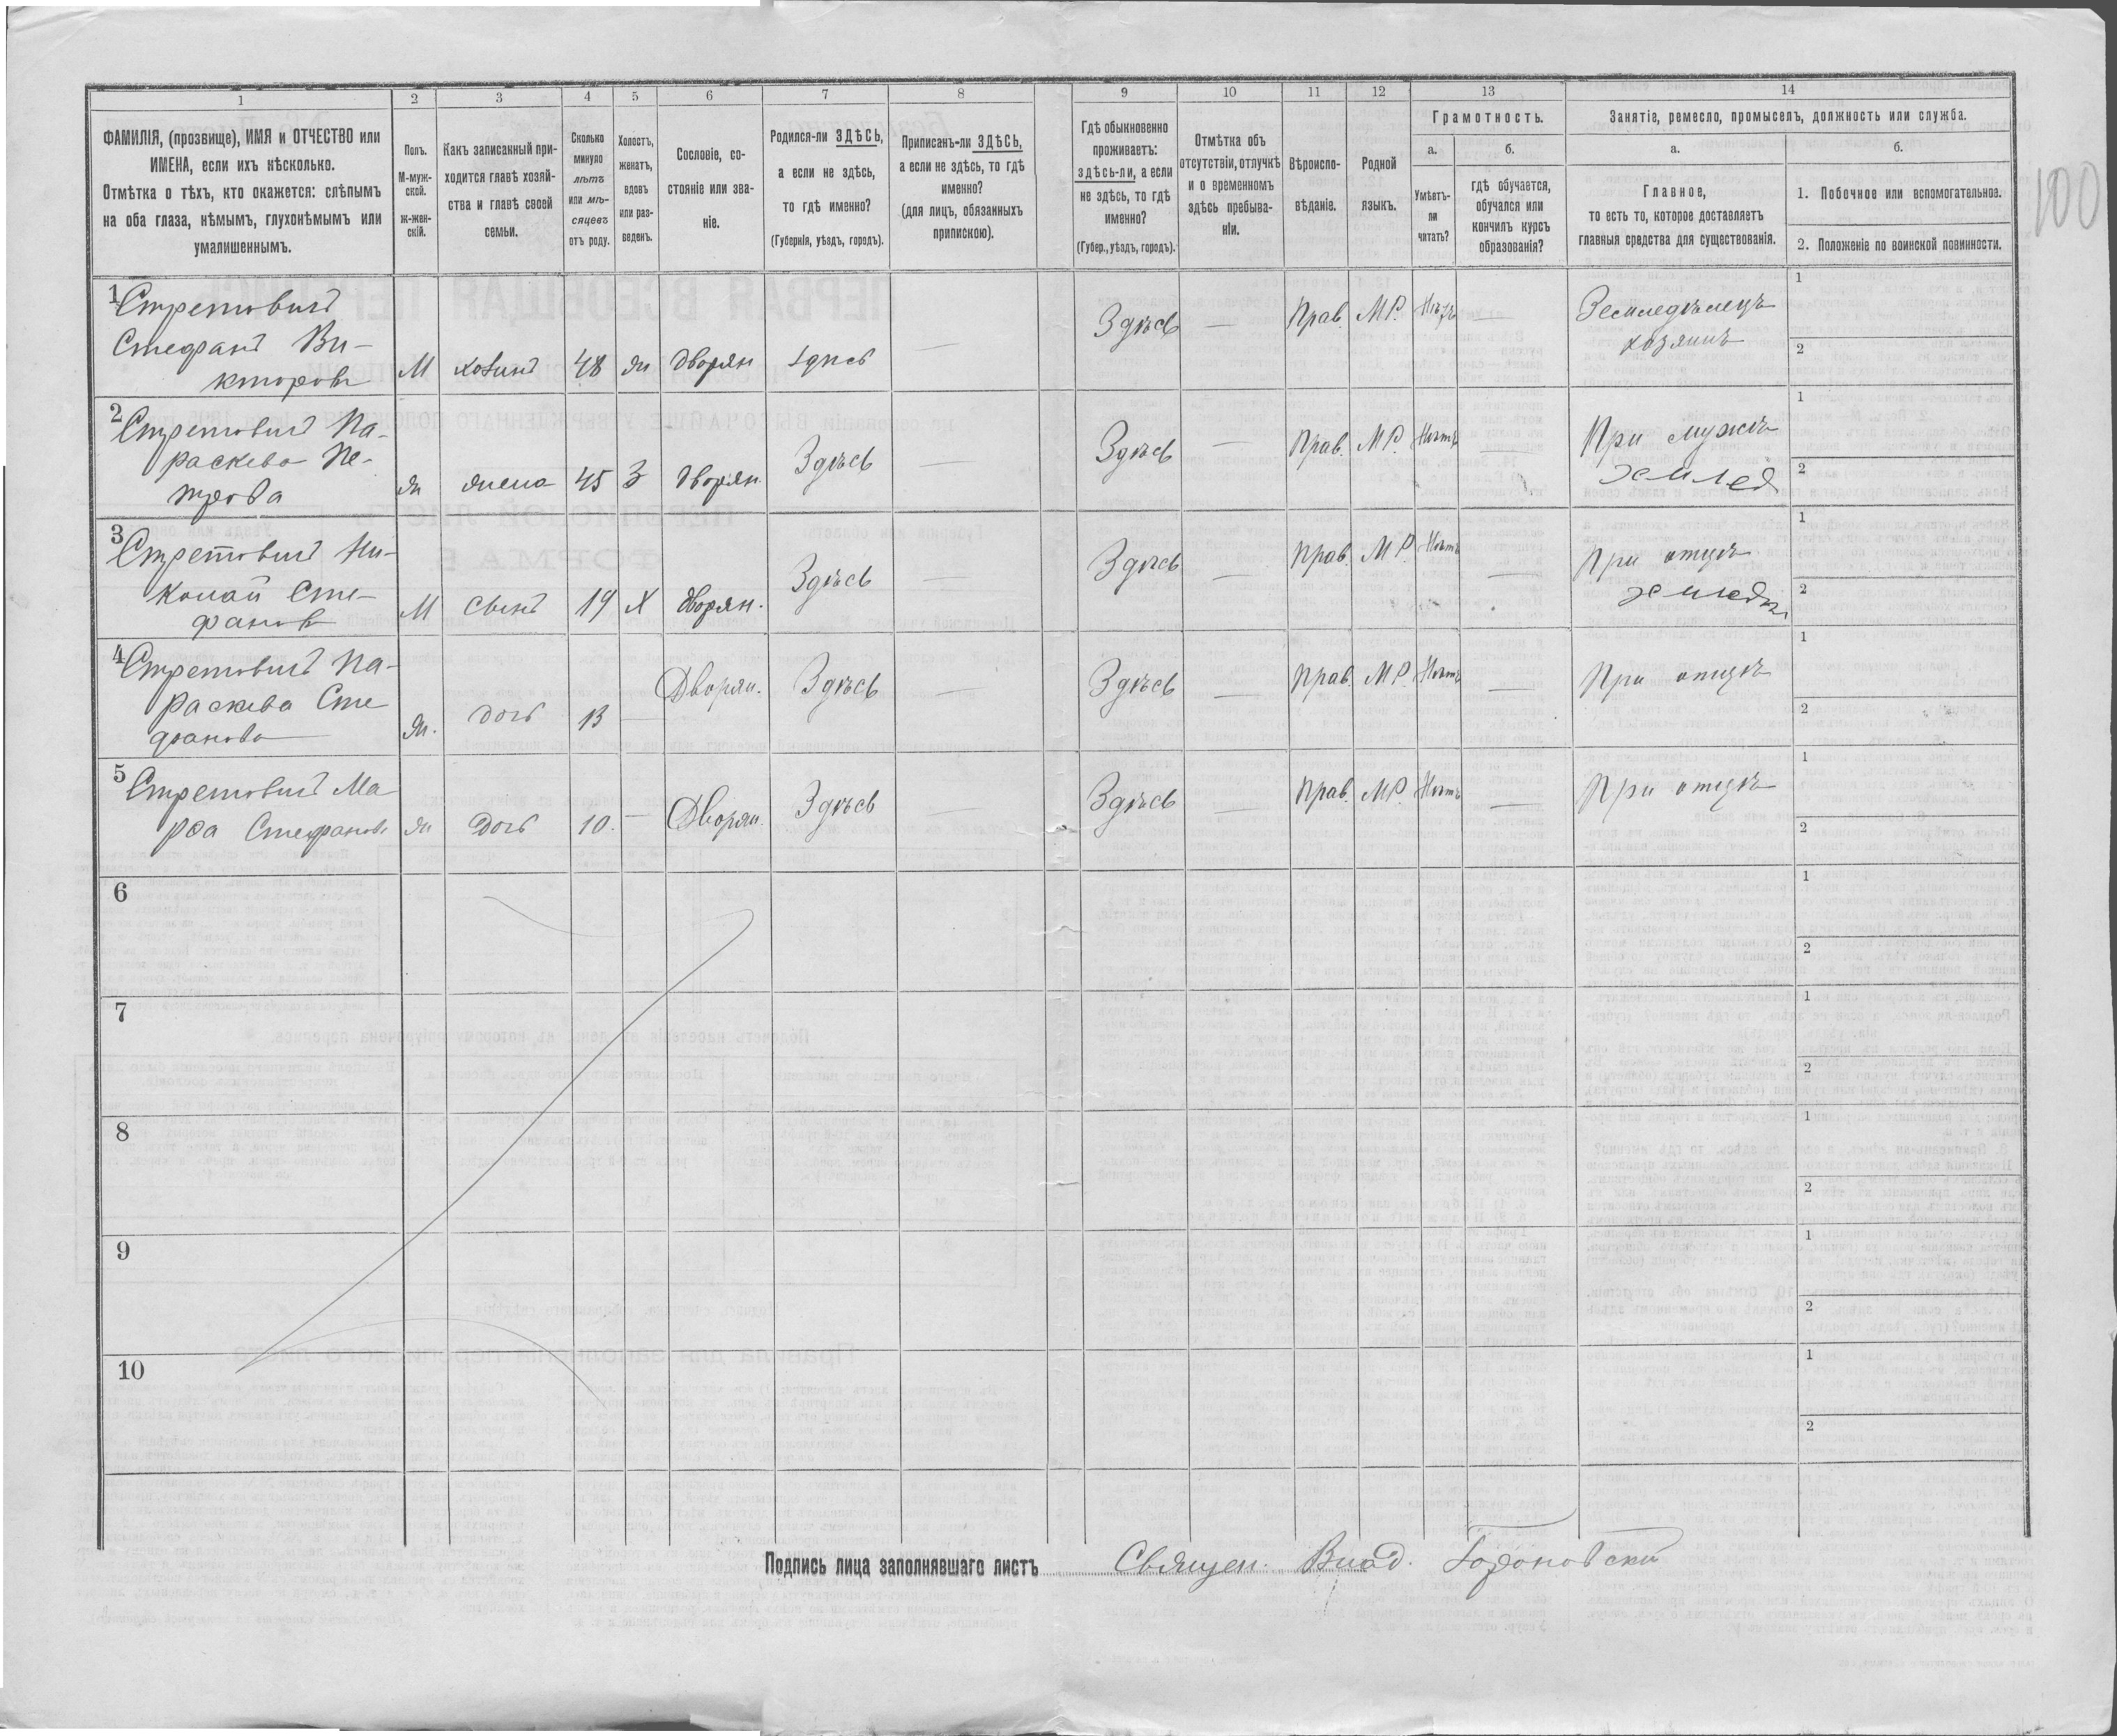 100
1 2 3 4 5 6 7 8 9 10 11 12 13 14
ФАМИЛІЯ, (прозвище), ИМЯ и ОТЧЕСТВО или
ИМЕНА, если ихъ нѣсколько.
Отмѣтка о тѣхъ, кто окажется: слѣпымъ
на оба глаза, нѣмымъ, глухонѣмымъ или
умалишеннымъ.
Полъ.
М-муж-
ской.
ж-жен-
скій.
Какъ записанный при-
ходится главѣ хозяй-
ства и главѣ своей
семьи.
Сколько
минуло
лѣтъ
или мѣ-
сяцевъ
отъ роду.
Холостъ,
женатъ,
вдовъ
или раз-
веденъ.
Сословіе, со-
стояніе или зва-
ніе.
Родился-ли ЗДѢСЬ,
а если не здѣсь,
то гдѣ именно?
(Губернія, уѣздъ, городъ).
Приписанъ-ли ЗДѢСЬ,
а если не здѣсь, то гдѣ
именно?
(для лицъ, обязанныхъ
припискою).
Гдѣ обыкновенно
проживаетъ:
здѣсь-ли, а если
не здѣсь, то гдѣ
именно?
(Губер., уѣздъ, городъ).
Отмѣтка объ
отсутствіи, отлучкѣ
и о временномъ
здѣсь пребыва-
ніи.
Вѣроиспо-
вѣданіе.
Родной
языкъ.
Грамотность.
а.
Умѣетъ-
ли
читать?
б.
гдѣ обучается,
обучался или
кончилъ курсъ
образованія?
Занятіе, ремесло, промыселъ, должность или служба.
а.
Главное,
то есть то, которое доставляетъ
главныя средства для существованія.
б.
1. Побочное или вспомогательное.
2. Положеніе по воинской повинности.
1 Стретовичъ
Стефанъ Ви-
кторовъ
М хозинъ 48 ж дворян здись — Здѣсь — Прав. М.Р. Нѣтъ —
Земледѣлецъ
хозяинъ
1
2
2 Стретовичъ Па-
раскева Пе-
трова
ж жена 45 З дворян. Здѣсь — Здѣсь — Прав. М.Р. Нѣтъ —
При мужѣ
землед
1
2
3 Стретовичъ Ни-
колай Сте-
фановъ
М сынъ 19 Х дворян. Здѣсь — Здѣсь — Прав. М.Р. Нѣтъ —
При отцѣ
1
2
4 Стретовичъ Па-
раскева Сте
фанова
ж. дочь 13 — Дворян. Здѣсь — Здѣсь — Прав. М.Р. Нѣтъ —
При отцѣ
1
2
5 Стретовичъ Ма
рѳа Стефанов
ж дочь 10. — Дворян. Здѣсь — Здѣсь — Прав. М.Р. Нѣтъ —
При отцѣ
1
2
6 1
2
7 1
2
8 1
2
9 1
2
10 1
2
Подпись лица заполнявшаго листъ Священ. Влад.